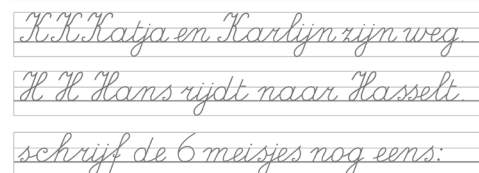 K K Katja en Karlijn zijn weg.
H H Hans rijdt naar Hasselt.
schrijf de 6 meisjes nog eens: